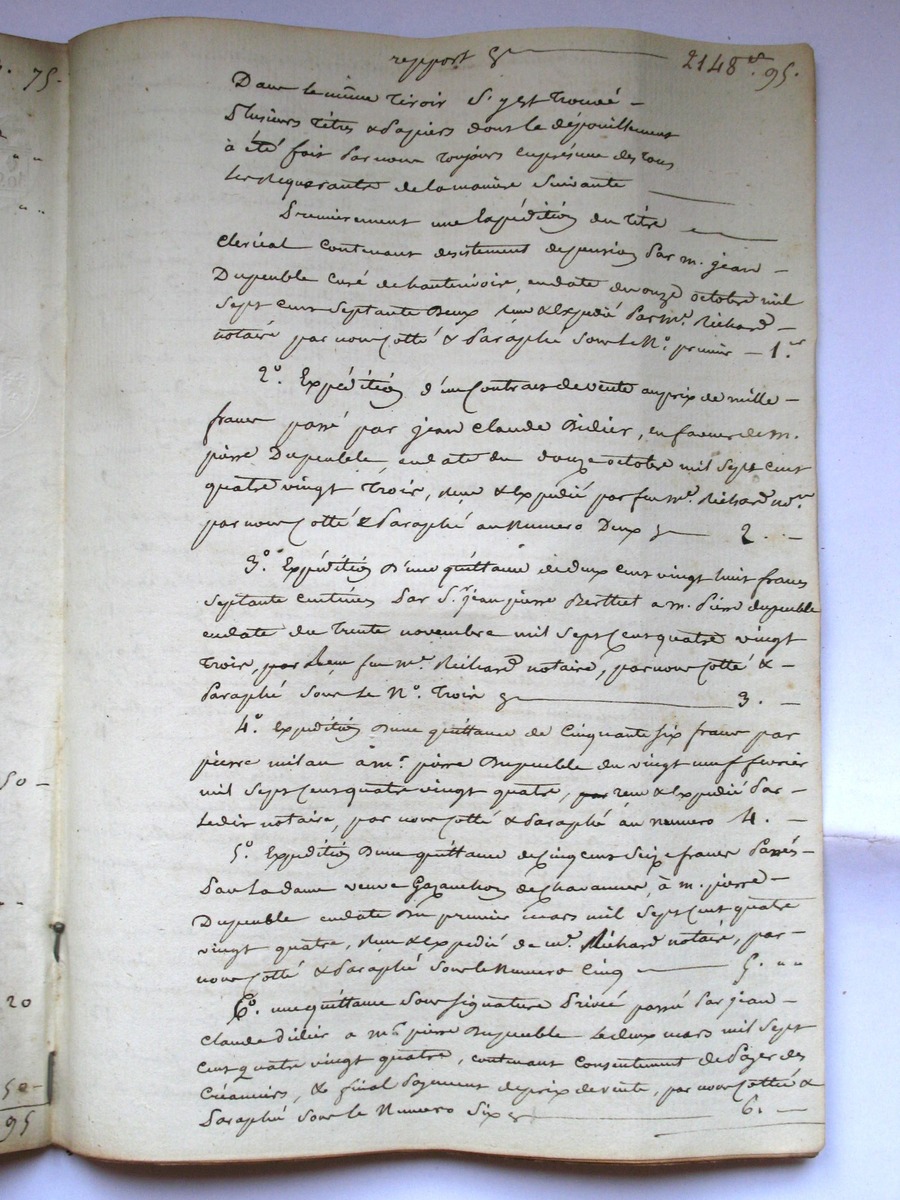 75.
rapport 2148 95.
Dans le même tiroir s'y est trouvé
Plusieurs titres & papiers dont le dépouillement
à été fait par nous toujours en présence des tous
les Requerants de la manière suivante
Premierement une Expédition du titre
clerical contenant desistement de pension par m. jean
Dupeuble curé de hauterivoire, en date du onze octobre mil
sept cent septante deux Reçu & Expedié par mr. Richard
notaire par nous Cotté & Paraphé sous le No. premier 1.er
2o. Expédition d'un Contrat de vente au prix de mille
francs passé par jean Claude Didier, en faveur de m.
pierre Dupeuble, en date du douze octobre mil sept cent
quatre vingt trois, Reçu & Expédié par feu mr. Richard nore.
par nous Cotté & Paraphé au Numero Deux 2.
3o. Expédition D'une quittance de deux cent vingt huit francs
septante centimes par Sr. jean pierre Berthet a m. Pierre dupeuble
en date du trente novembre mil sept Cent quatre vingt
trois, par Reçu feu mr. Richard notaire, par nous Cotté &
Paraphé sous le No. trois 3.
4o. Expédition D'une quittance de Cinquante six francs par
pierre milan à mr. pierre Dupeuble du vingt neuf fevrier
mil sept Cent quatre vingt quatre, par reçu & Expédié par
Ledit notaire, par nous Cotté & Paraphé au numero 4.
5o. Expédition D'une quittance de Cinq cent seize francs Passés
Par La dame veuve de Chavannes, à m. pierre
Dupeuble en date Du premier mars mil sept Cent quatre
vingt quatre, Reçu & Expédié de mr. Richard notaire, par
nous Cotté & Paraphé sous le Numero Cinq 5.
6o. une quittance sous signature Privée passé par jean
Claude Didier a mr. pierre Dupeuble le deux mars mil sept
Cent quatre vingt quatre, contenant Consentement de Payer des
Créanciers, & final Payement de prix de vente, par nous Cotté &
Paraphé sous le Numero Six 6.
50
20
50
95